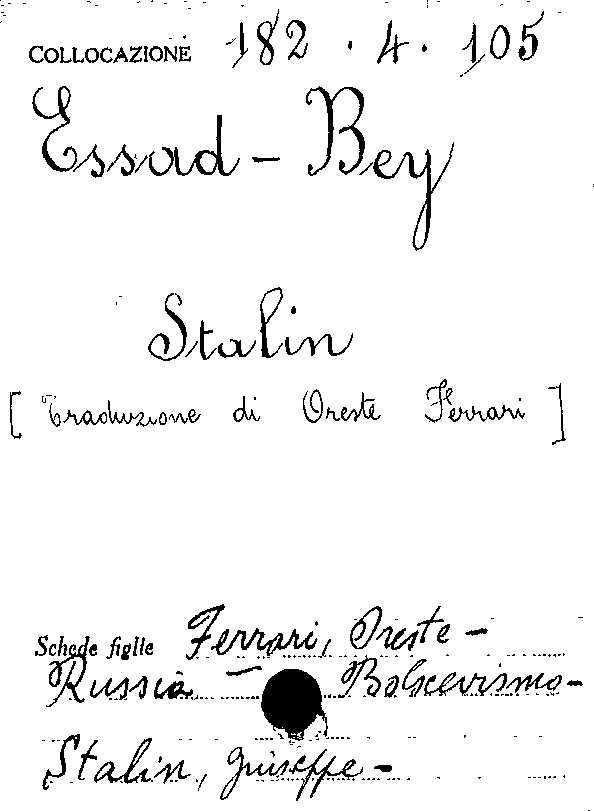 COLLOCAZIONE 182 . 4 . 105
Essad - Bey
Stalin
[ Traduzione di Oreste Ferrari ]
Schede figlie Ferrari, Oreste -
Russia - Bolscevismo -
Stalin, Giuseppe -